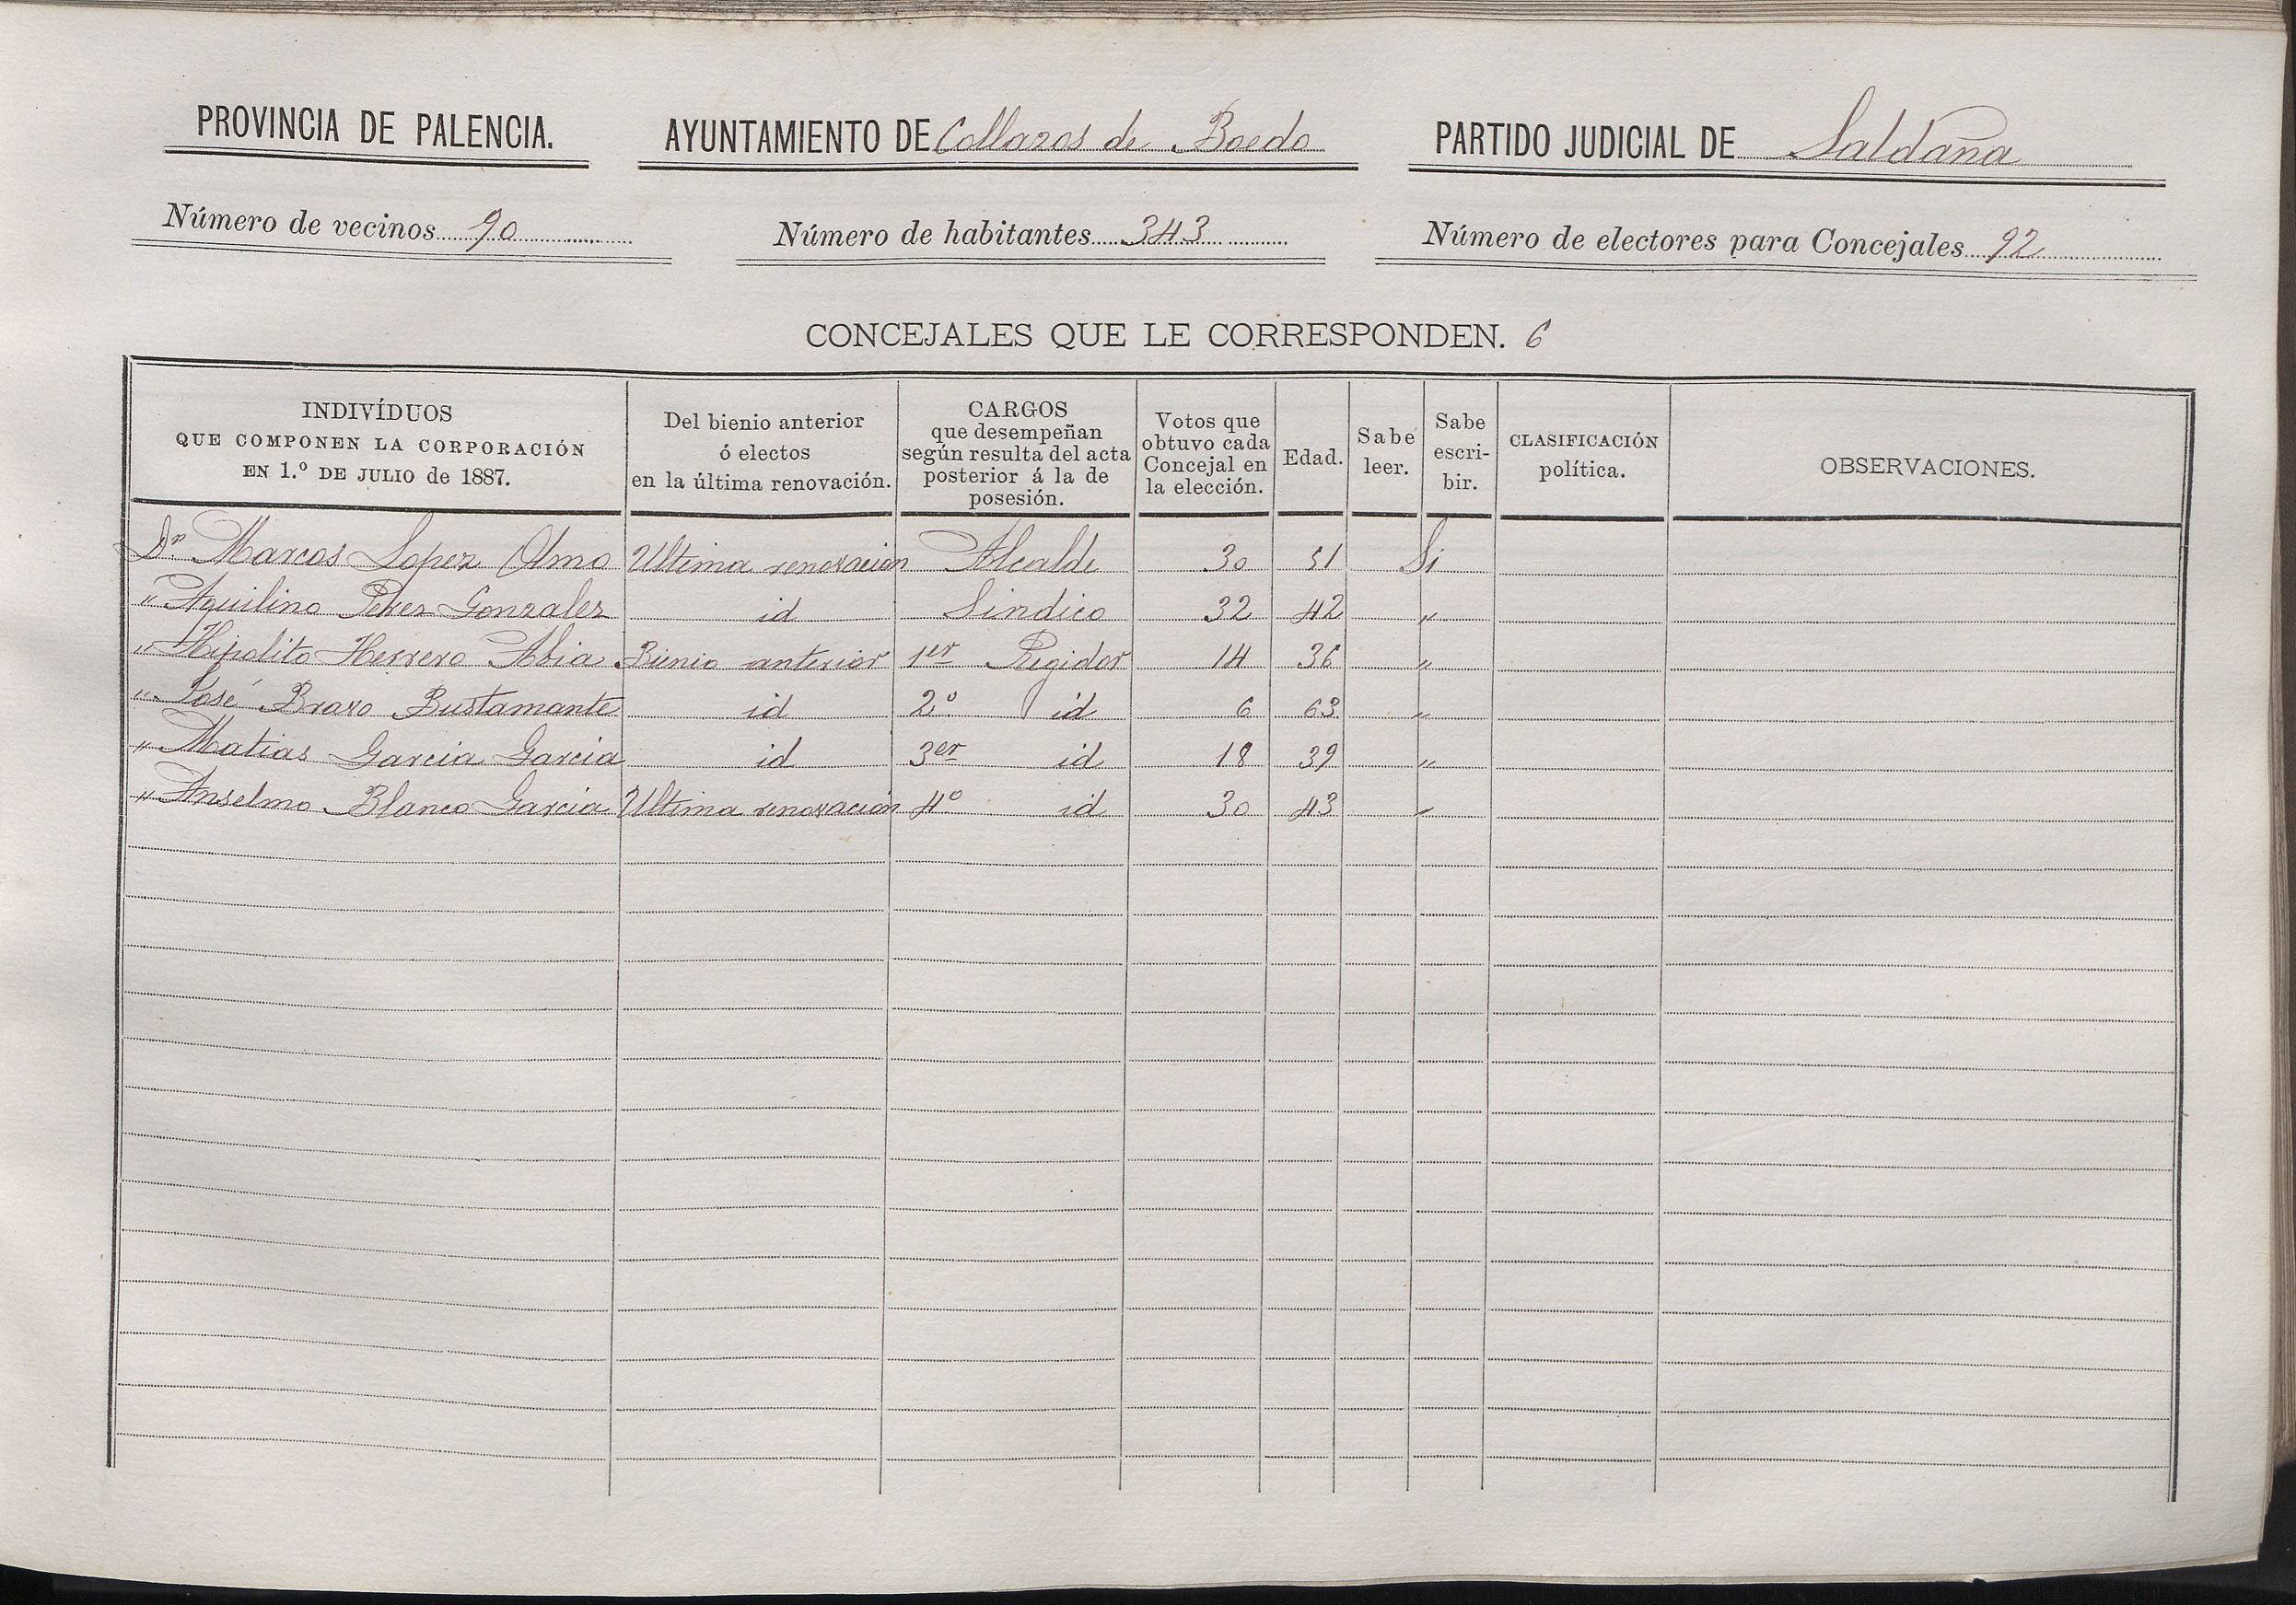 PROVINCIA DE PALENCIA. AYUNTAMIENTO DE Collazos de Boedo PARTIDO JUDICIAL DE Saldaña
Número de vecinos 90 Número de habitantes 343 Número de electores para Concejales 92
CONCEJALES QUE LE CORRESPONDEN. 6
INDIVÍDUOS
QUE COMPONEN LA CORPORACIÓN
EN 1.º DE JULIO de 1887.
Del bienio anterior
ó electos
en la última renovación.
CARGOS
que desempeñan
según resulta del acta
posterior á la de
posesión.
Votos que
obtuvo cada
Concejal en
la elección.
Edad.
Sabe
leer.
Sabe
escri-
bir.
CLASIFICACIÓN
política.
OBSERVACIONES.
Dn Marcos Lopez Olmo Ultima renovación Alcalde 30 51 Si
" Aquilino Perez Gonzalez id Sindico 32 42 "
" Hipolito Herrero Abia Bienio anterior 1er Regidor 14 36 "
" José Bravo Bustamante id 2º id 6 63 "
" Matias Garcia Garcia id 3er id 18 39 "
" Anselmo Blanco Garcia Ultima renovación 4º id 30 43 "